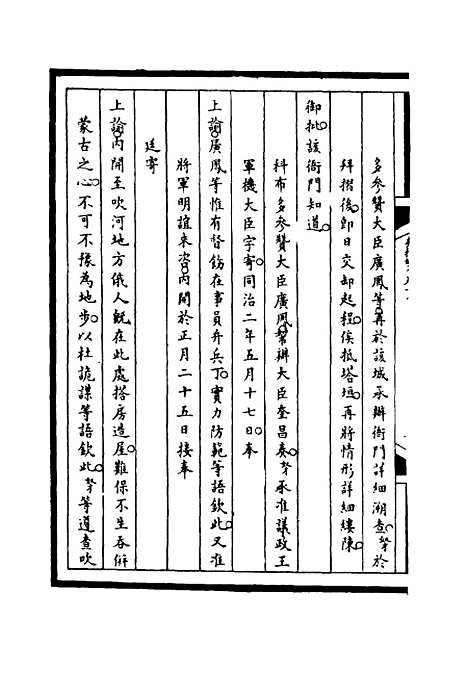 多參贊大臣廣鳳等再於該城承辦衙門詳細溯查。努於
拜摺後。卽日交卸起程。俟抵塔垣。再將情形詳細縷陳。
御批。該衙門知道。
科布多參贊大臣廣鳳。幫辦大臣奎昌奏。努承准議政王
軍機大臣字寄。同治二年五月十七日。奉
上諭。廣鳳等惟有督飭在事員弁兵丁。實力防範等語。欽此。又准
將軍明誼來咨。內開於正月二十五日接奉
廷寄
上諭。內開至吹河地方俄人旣在此處搭房造屋。難保不生吞併
蒙古之心。不可不豫為地步。以杜詭謀等語。欽此。努等遵查吹